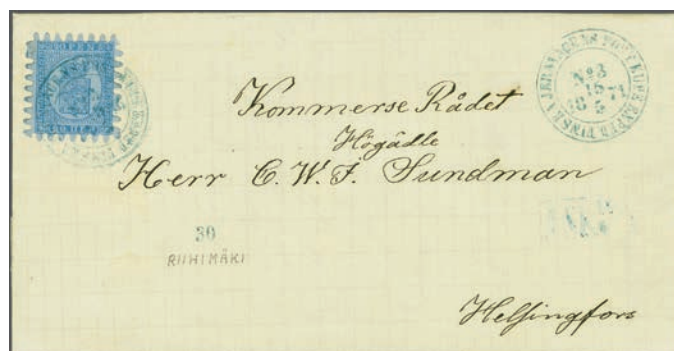 FINSKA JERNVÄGENS POSTKUPÉ EXPED.
No 3
15
18 71
5
Kommerse Rådet
Högädle
Herr C. W. F. Sundman
30
RIIHIMÄKI
Helsingfors